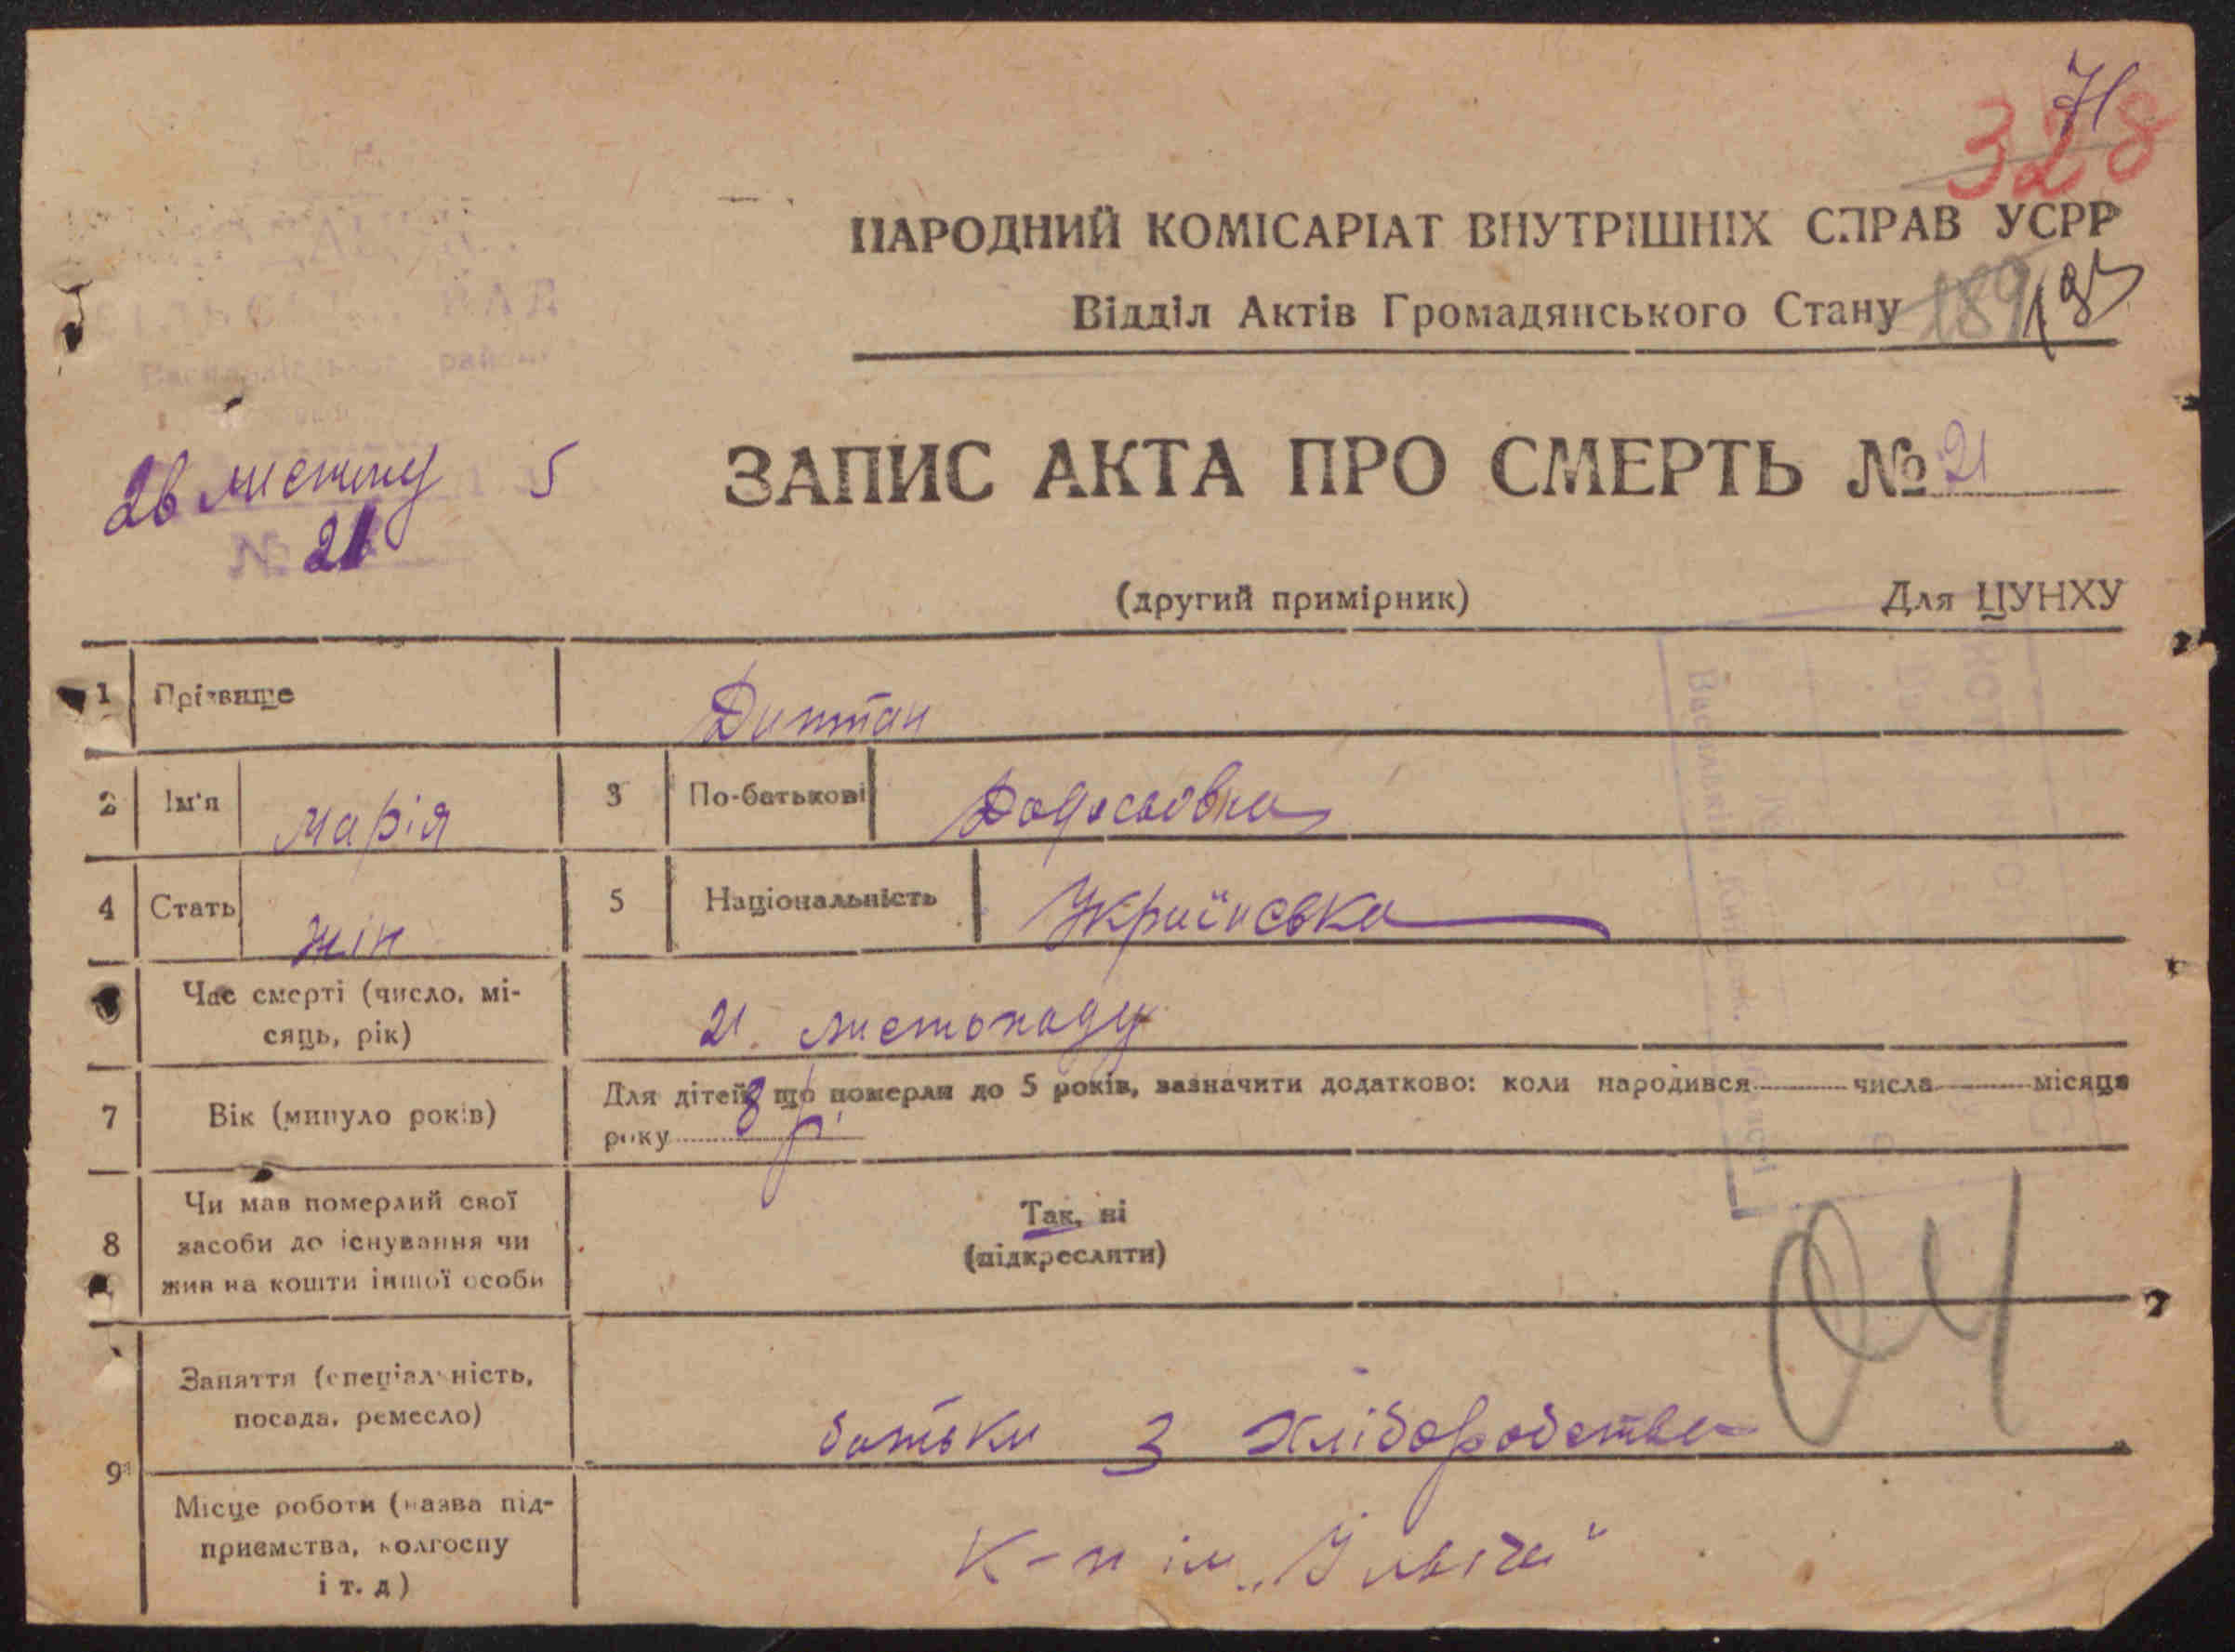 71
328
НАРОДНИЙ КОМІСАРІАТ ВНУТРІШНІХ СПРАВ УСРР
Відділ Актів Громадянського Стану 189
району
26 листопу 5
№ 21
ЗАПИС АКТА ПРО СМЕРТЬ № 21
(другий примірник) Для ЦУНХУ
1 Прізвище Дитпан
2 Ім'я Марія 3 По-батькові
4 Стать жін 5 Національність Українська
Час смерті (число, мі-
сяць, рік) 21. листопаду
7 Вік (минуло років) 8 р.
Для дітей, що померли до 5 років, зазначити додатково: коли народився числа місяця
року
8 Чи мав померлий свої
засоби до існування чи
жив на кошти іншої особи
Так, ні
(підкреслити)
04
9 Заняття (спеціальність,
посада, ремесло) батьки з хліборобства
Місце роботи (назва під-
приємства, колгоспу
і т. д) К-п ім. „Ілліча"